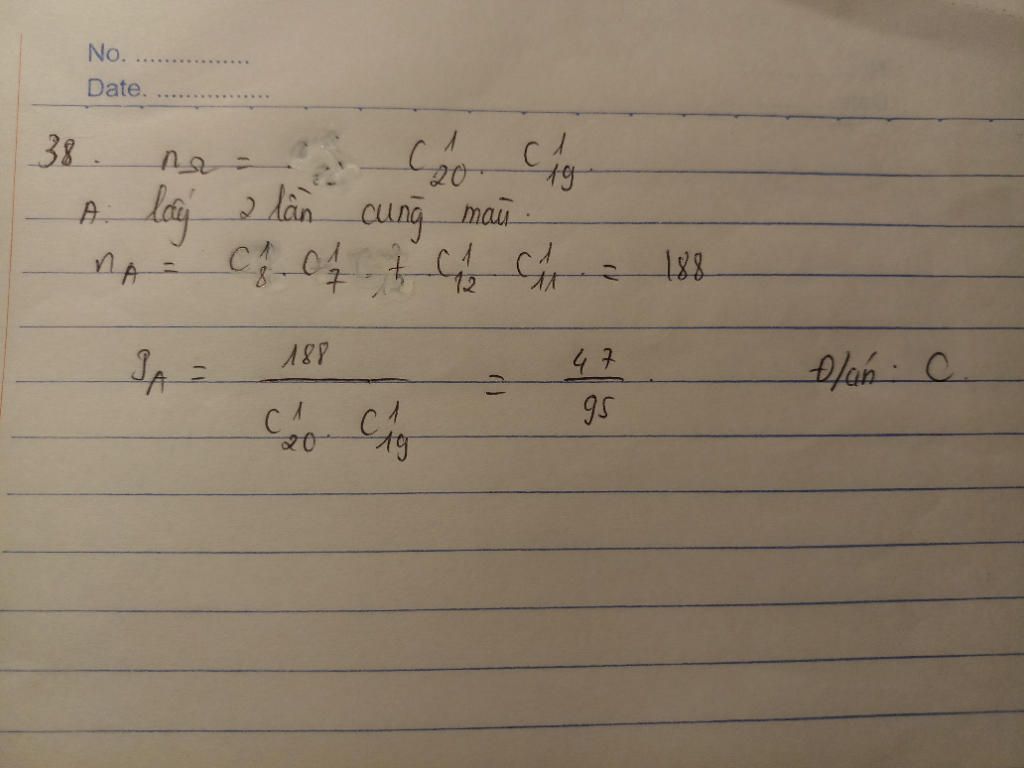 No. ................
Date. ................
38. nΩ = C¹₂₀. C¹₁₉.
A: lấy 2 lần cùng màu.
n_A = C¹₈. C¹₇ + C¹₁₂ C¹₁₁ = 188
P_A = 188 / C¹₂₀. C¹₁₉ = 47 / 95. Đ/án: C.